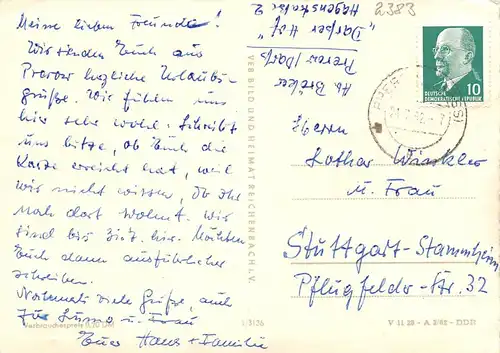 Meine lieben Freunde!
Wir senden Euch aus
Prerow herzliche Urlaubs-
grüße. Wir fühlen uns
hier sehr wohl. Schreibt
uns bitte, ob Euch die
Karte erreicht hat, weil
wir nicht wissen, ob Ihr
noch dort wohnt. Wir
sind bis hier. Möchten
Euch dann ausführlicher
schreiben.
Nochmals viele Grüße, auch
für u. Frau
Euer Hans + Familie
Verbraucherpreis 0,20 DM
L 3136
VEB BILD UND HEIMAT REICHENBACH I. V.
Ab
Prerow/Darß
"Darßer Hof"
Hagenstraße 2
2383
10
DEUTSCHE
DEMOKRATISCHE REPUBLIK
Herrn
Lothar Winkler
u. Frau
Stuttgart-Stammheim
Pflugfelder-Str. 32
V 11 28 - A 2/62 - DDR